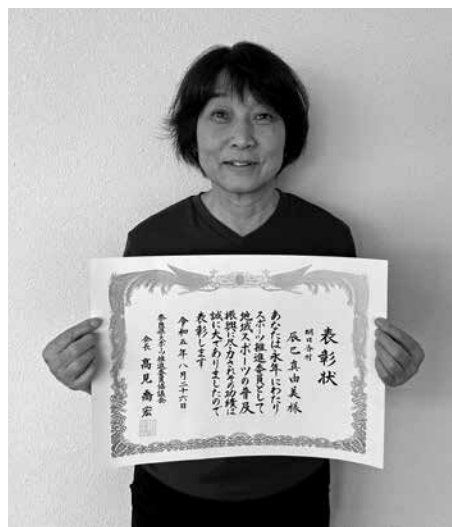 表彰状
明日香村
辰巳真由美様
あなたは永年にわたり
スポーツ推進委員として
地域スポーツの普及
振興に尽力されその功績は
誠に大でありましたので
表彰します
令和五年八月二十六日
奈良県スポーツ推進委員協議会
会長 高見喬宏